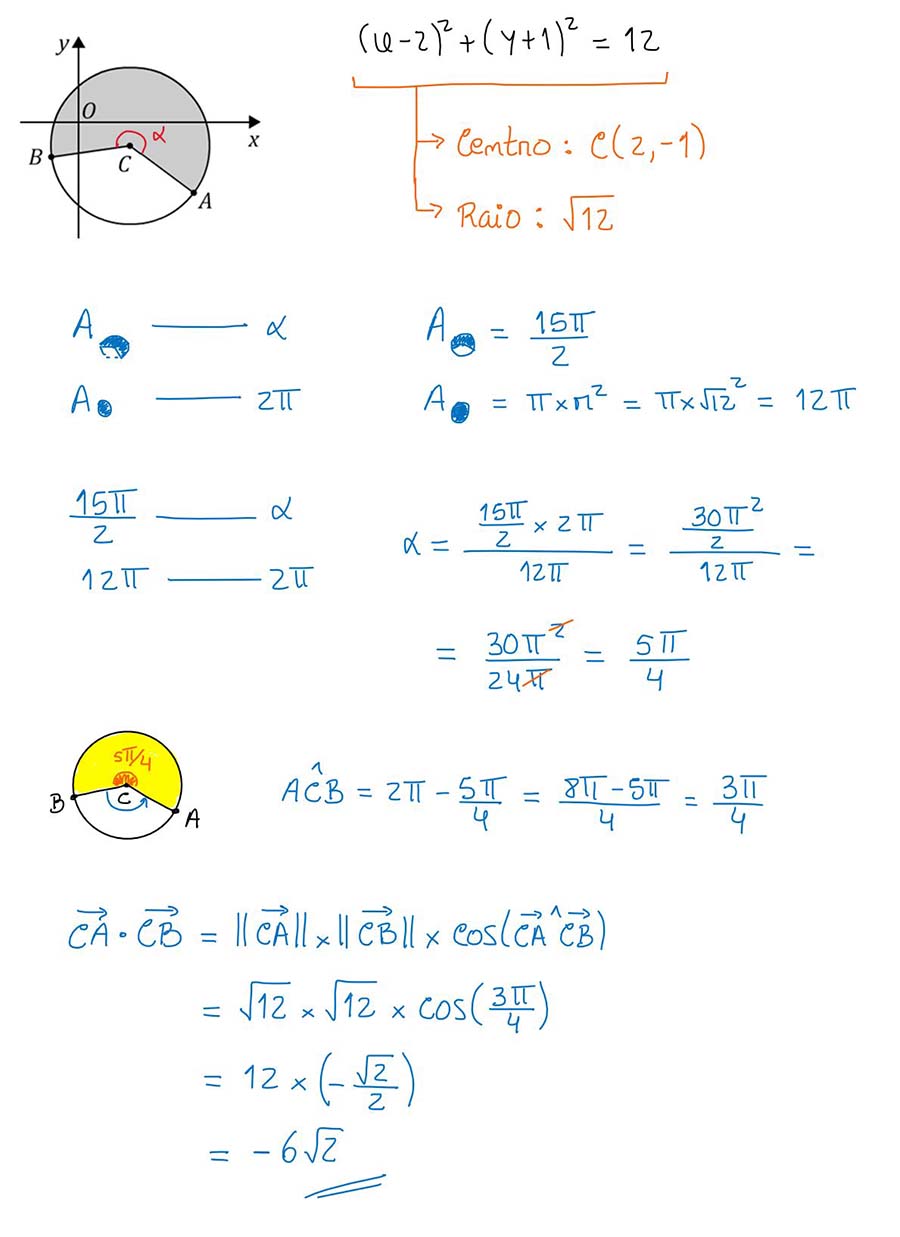 y
O
x
α
B
C
A
(x-2)² + (y+1)² = 12
Centro : C(2,-1)
Raio : √12
A —— α
A —— 2π
A = 15π/2
A = π×r² = π×√12² = 12π
15π/2 —— α
12π —— 2π
α = (15π/2 × 2π)/(12π) = (30π²/2)/(12π) =
= 30π²/24π = 5π/4
5π/4
B
C
A
AĈB = 2π - 5π/4 = (8π-5π)/4 = 3π/4
CA⃗ · CB⃗ = ||CA⃗|| × ||CB⃗|| × cos(CA⃗ ^ CB⃗)
= √12 × √12 × cos(3π/4)
= 12 × (-√2/2)
= -6√2